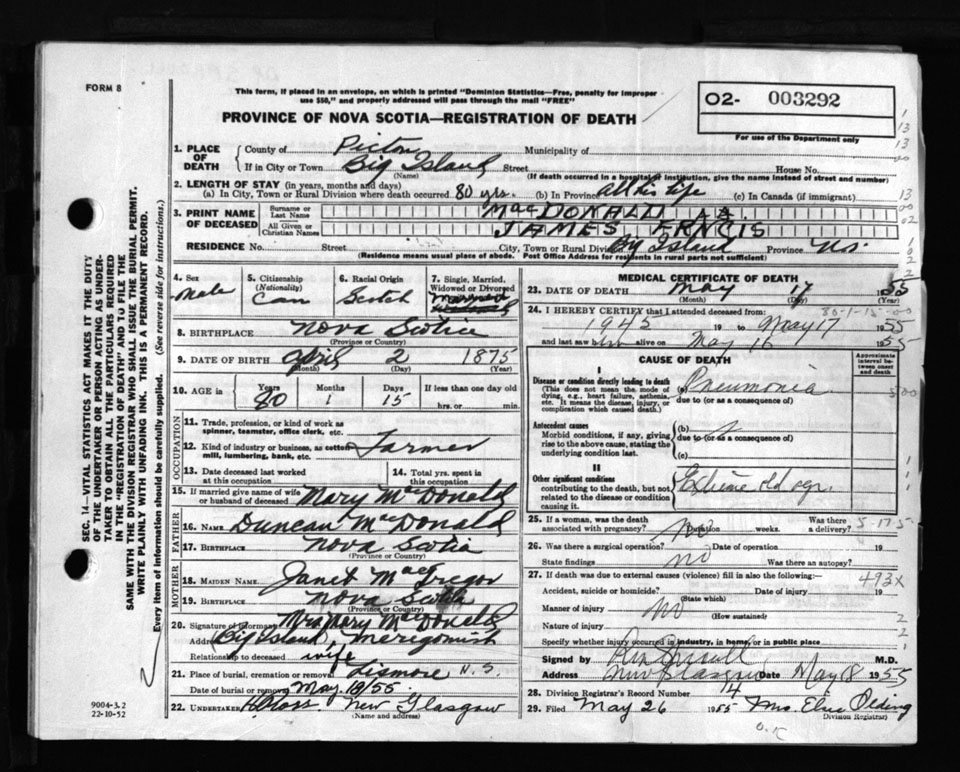 FORM 8
This form, if placed in an envelope, on which is printed "Dominion Statistics—Free, penalty for improper
use $50," and properly addressed will pass through the mail "FREE"
PROVINCE OF NOVA SCOTIA—REGISTRATION OF DEATH
O2- 003292
For use of the Department only
1. PLACE OF DEATH
County of Pictou Municipality of
If in City or Town Big Island Street House No.
(Name) (If death occurred in a hospital or institution, give the name instead of street and number)
2. LENGTH OF STAY (in years, months and days)
(a) In City, Town or Rural Division where death occurred 80 yrs. (b) In Province all his life (c) In Canada (if immigrant)
3. PRINT NAME OF DECEASED
Surname or Last Name MacDONALD
All Given or Christian Names JAMES FRNCIS
RESIDENCE No. Street City, Town or Rural Division Big Island Province N.S.
(Residence means usual place of abode. Post Office Address for residents in rural parts not sufficient)
4. Sex
Male
5. Citizenship
(Nationality)
Can
6. Racial Origin
Scotch
7. Single, Married, Widowed or Divorced
Married
8. BIRTHPLACE Nova Scotia
(Province or Country)
9. DATE OF BIRTH April 2 1875
(Month) (Day) (Year)
10. AGE in
Years 80
Months 1
Days 15
If less than one day old
hrs. or min.
OCCUPATION
11. Trade, profession, or kind of work as
spinner, teamster, office clerk, etc.
12. Kind of industry or business, as cotton
mill, lumbering, bank, etc. Farmer
13. Date deceased last worked
at this occupation
14. Total yrs. spent in
this occupation
15. If married give name of wife
or husband of deceased Mary MacDonald
FATHER
16. NAME Duncan MacDonald
17. BIRTHPLACE Nova Scotia
(Province or Country)
MOTHER
18. MAIDEN NAME Janet MacGregor
19. BIRTHPLACE Nova Scotia
(Province or Country)
20. Signature of informant Mrs Mary MacDonald
Address (Big Island) Merigomish
Relationship to deceased wife
21. Place of burial, cremation or removal Lismore N.S.
Date of burial or removal May 18/55.
22. UNDERTAKER New Glasgow
(Name and address)
MEDICAL CERTIFICATE OF DEATH
23. DATE OF DEATH May 17 55
(Month) (Day) (Year)
24. I HEREBY CERTIFY that I attended deceased from:
1945 19 to May 17 1955
and last saw him alive on May 16 1955
CAUSE OF DEATH
Approximate interval between onset and death
I
Disease or condition directly leading to death
(This does not mean the mode of
dying, e.g., heart failure, asthenia,
etc. It means the disease, injury, or
complication which caused death.)
(a) Pneumonia
due to (or as a consequence of)
Antecedent causes
Morbid conditions, if any, giving
rise to the above cause, stating the
underlying condition last.
(b)
due to (or as a consequence of)
(c)
II
Other significant conditions
contributing to the death, but not
related to the disease or condition
causing it.
Extreme old age.
25. If a woman, was the death
associated with pregnancy? No Duration weeks. Was there
a delivery?
5-17-5
26. Was there a surgical operation? Date of operation 19
State findings no Was there an autopsy?
27. If death was due to external causes (violence) fill in also the following:
493x
Accident, suicide or homicide? Date of injury 19
(State which)
Manner of injury No
(How sustained)
Nature of injury
Specify whether injury occurred in industry, in home, or in public place
Signed by M.D.
Address New Glasgow Date May 18 1955
28. Division Registrar's Record Number 14
29. Filed May 26 1955 Mrs. Elsie Olding
(Division Registrar)
O.K
9004-3.2
22-10-52
SEC. 14—VITAL STATISTICS ACT MAKES IT THE DUTY
OF THE UNDERTAKER OR PERSON ACTING AS UNDER-
TAKER TO OBTAIN ALL THE PARTICULARS REQUIRED
IN THE "REGISTRATION OF DEATH" AND TO FILE THE
SAME WITH THE DIVISION REGISTRAR WHO SHALL ISSUE THE BURIAL PERMIT.
WRITE PLAINLY WITH UNFADING INK. THIS IS A PERMANENT RECORD.
Every item of information should be carefully supplied. (See reverse side for instructions.)